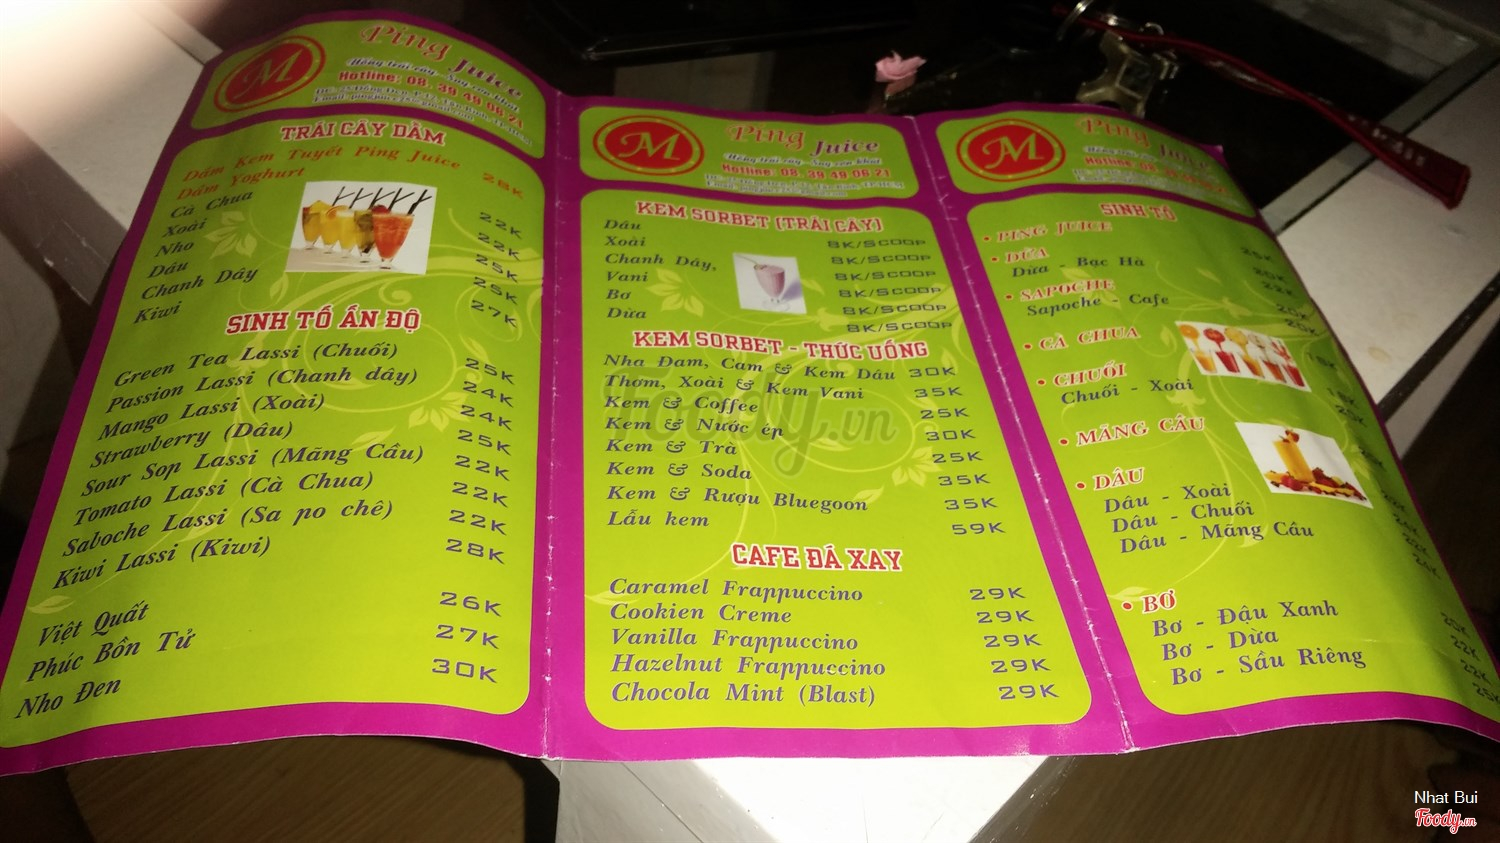 M
Ping Juice
Hồng trái cây - Suy còn khát
Hotline: 08. 39 49 06 21
TRÁI CÂY DẦM
Dầm Kem Tuyết Ping Juice 28K
Dầm Yoghurt
Cà Chua 22K
Xoài 22K
Nho 25K
Dâu 25K
Chanh Dây 27K
Kiwi
SINH TỐ ẤN ĐỘ
Green Tea Lassi (Chuối) 25K
Passion Lassi (Chanh dây) 24K
Mango Lassi (Xoài) 24K
Strawberry (Dâu) 25K
Sour Sop Lassi (Mãng Cầu) 22K
Tomato Lassi (Cà Chua) 22K
Saboche Lassi (Sa po chê) 22K
Kiwi Lassi (Kiwi) 28K
Việt Quất 26K
Phúc Bồn Tử 27K
Nho Đen 30K
M
Ping Juice
Hotline: 08. 39 49 06 21
KEM SORBET (TRÁI CÂY)
Dâu 8K/SCOOP
Xoài 8K/SCOOP
Chanh Dây,
Vani 8K/SCOOP
Bơ 8K/SCOOP
Dừa 8K/SCOOP
KEM SORBET - THỨC UỐNG
Nha Đam, Cam & Kem Dâu 30K
Thơm, Xoài & Kem Vani 35K
Kem & Coffee 25K
Kem & Nước ép 30K
Kem & Trà 25K
Kem & Soda 35K
Kem & Rượu Bluegoon 35K
Lẩu kem 59K
CAFE ĐÁ XAY
Caramel Frappuccino 29K
Cookien Creme 29K
Vanilla Frappuccino 29K
Hazelnut Frappuccino 29K
Chocola Mint (Blast) 29K
M
Ping Juice
SINH TỐ
• PING JUICE
• DỪA 20K
Dừa - Bạc Hà 22K
• SAPOCHE 20K
Sapoche - Cafe 20K
• CÀ CHUA
• CHUỐI
Chuối - Xoài
• MÃNG CẦU
• DÂU
Dâu - Xoài
Dâu - Chuối
Dâu - Mãng Cầu
• BƠ
Bơ - Đậu Xanh 22K
Bơ - Dừa 22K
Bơ - Sầu Riêng 25K
Foody.vn
Nhat Bui
Foody.vn